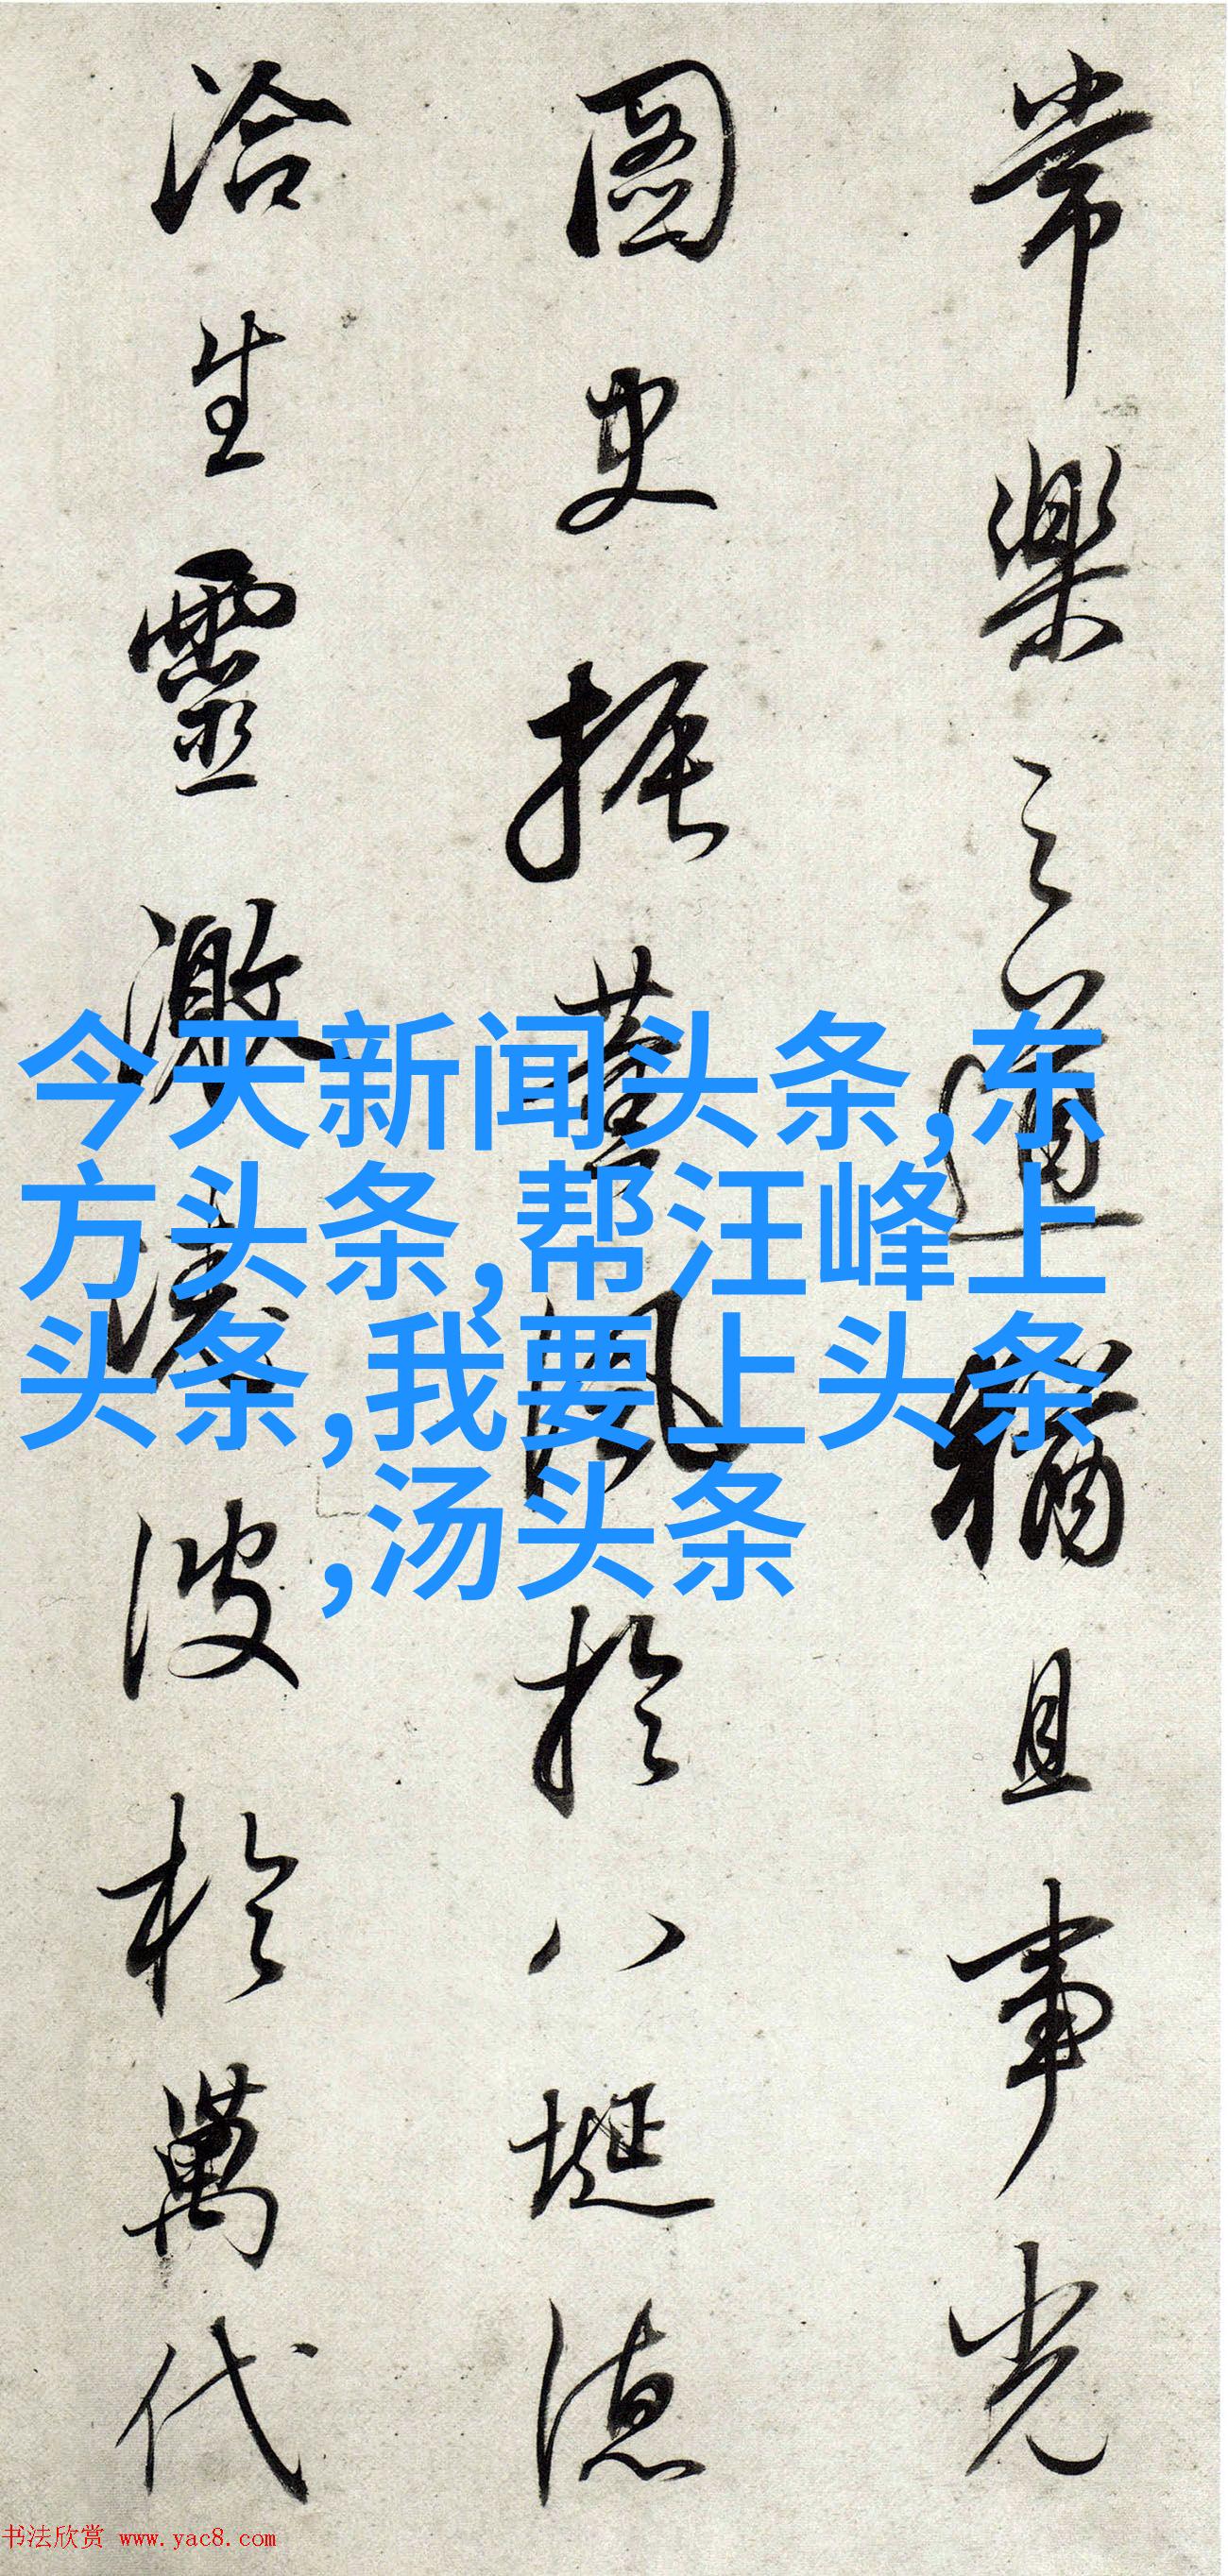 常樂之道猶且事光
圖史振薰風於八埏德
洽生靈激淒波於萬代
今天新闻头条,东
方头条,帮汪峰上
头条,我要上头条
,汤头条
书法欣赏 www.yac8.com